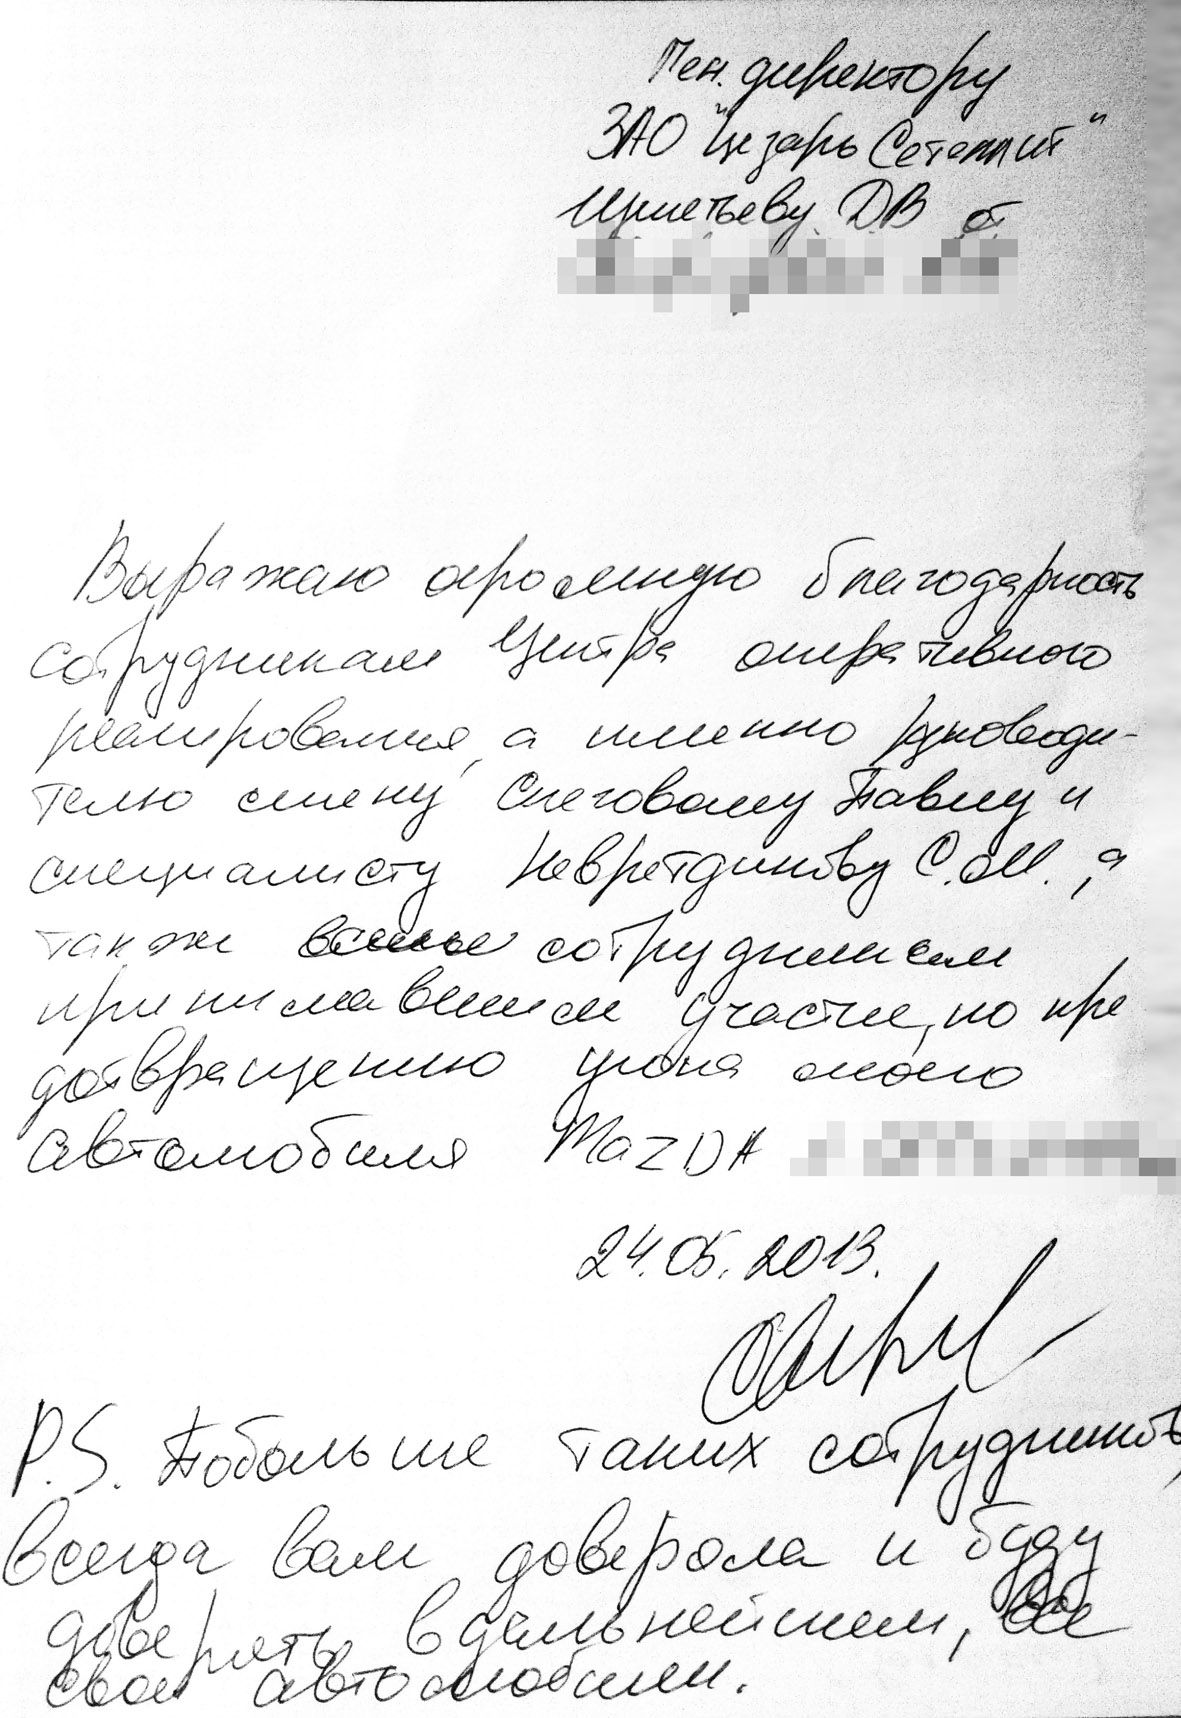 Ген. директору
ЗАО "Цезарь Сателлит"
ДВ от
Выражаю огромную благодарность
сотрудникам Центра оперативного
реагирования, а именно руководи-
телю смены Снеговому Павлу и
специалисту Невретдинову С.М., а
также всем сотрудникам
принимавшим участие, по пре
дотвращению угона моего
автомобиля MaZDA
24.05.2013.
P.S. Побольше таких сотрудников,
всегда вам доверяла и буду
доверять в дальнейшем, все
свои автомобили.